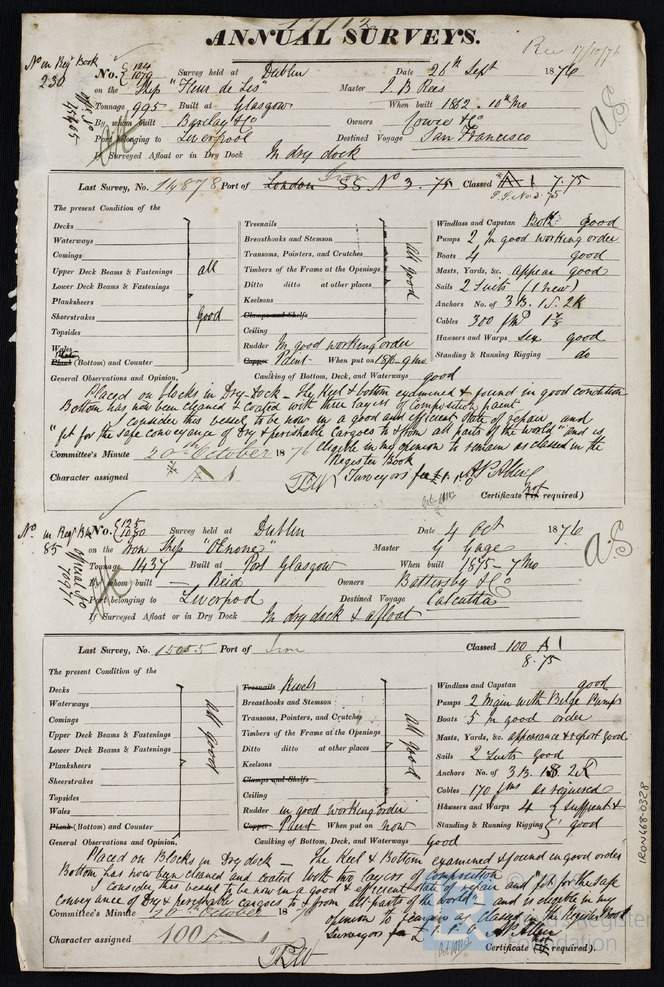 17112
ANNUAL SURVEYS.
Rec 17/10/76
No in Reg Book
230
No. 124
1079 Survey held at Dublin Date 26th Sept 1876
on the Ship "Fleur de Lis" Master J. B Rees
Tonnage 995 Built at Glasgow When built 1862. 10th Mo
By whom built Barclay & Co Owners Cowie & Co
Port belonging to Liverpool Destined Voyage San Francisco
If Surveyed Afloat or in Dry Dock In dry dock
Iron
Last Survey, No. 14878 Port of London SS No 3. 75 Classed A 1 7.75
The present Condition of the
Decks
Waterways
Comings
Upper Deck Beams & Fastenings
Lower Deck Beams & Fastenings
Planksheers
Sheerstrakes
Topsides
Wales
Plank (Bottom) and Counter
all
good
Treenails
Breasthooks and Stemson
Transoms, Pointers, and Crutches
Timbers of the Frame at the Openings
Ditto ditto at other places
Keelsons
Clamps and Shelfs
Ceiling
all good
Rudder In good working order
Copper Paint When put on 1876
Windlass and Capstan Both good
Pumps 2 In good working order
Boats 4 good
Masts, Yards, &c. appear good
Sails 2 Suits (1 new)
Anchors No. of 3B. 1S. 2K
Cables 300 fms 1 7/8
Hawsers and Warps Six good
Standing & Running Rigging do
General Observations and Opinion, Caulking of Bottom, Decks, and Waterways good
Placed on blocks in Dry-Dock – The Keel & bottom examined & found in good condition
Bottom has now been cleaned & coated with three layers of composition paint
I consider this vessel to be now in a good and efficient state of repair, and
"fit for the safe conveyance of Dry & perishable cargoes to & from all parts of the world" and is
Committee's Minute 20th October 1876 eligible in my opinion to remain as classed in the
Register Book
Character assigned A 1
Surveyors fee
Certificate not required)
No in Reg Bk
85
No. 125
1080 Survey held at Dublin Date 4 Oct 1876
on the Iron Ship "OEnone" Master G Gage
Tonnage 1437 Built at Port Glasgow When built 1875 – 7 Mo
By whom built Reid Owners Battersby & Co
Port belonging to Liverpool Destined Voyage Calcutta
If Surveyed Afloat or in Dry Dock In dry dock & afloat
Official No
70971
Last Survey, No. 15055 Port of Iron Classed 100 A 1
8.75
The present Condition of the
Decks
Waterways
Comings
Upper Deck Beams & Fastenings
Lower Deck Beams & Fastenings
Planksheers
Sheerstrakes
Topsides
Wales
Plank (Bottom) and Counter
all good
Treenails Rivets
Breasthooks and Stemson
Transoms, Pointers, and Crutches
Timbers of the Frame at the Openings
Ditto ditto at other places
Keelsons
Clamps and Shelfs
Ceiling
all good
Rudder in good working order
Copper Paint When put on now
Windlass and Capstan good
Pumps 2 Main with Bilge Pumps
Boats 5 In good order
Masts, Yards, &c. appearance & report good
Sails 2 Suits good
Anchors No. of 3B. 1S. 2K
Cables 170 fms as required
Hawsers and Warps 4 sufficient &
Standing & Running Rigging good
General Observations and Opinion, Caulking of Bottom, Decks, and Waterways good
Placed on Blocks in Dry dock – The Keel & Bottom examined & found in good order
Bottom has now been cleaned and coated with two layers of composition
I consider this vessel to be now in a good & efficient state of repair and "fit for the safe
conveyance of Dry & perishable cargoes to & from all parts of the world" and is eligible in my
Committee's Minute 20th October 187 opinion to remain as classed in the Register Book
Character assigned 100 A 1
Surveyors fee
Certificate not required).
IRON668-0328
Register
Foundation